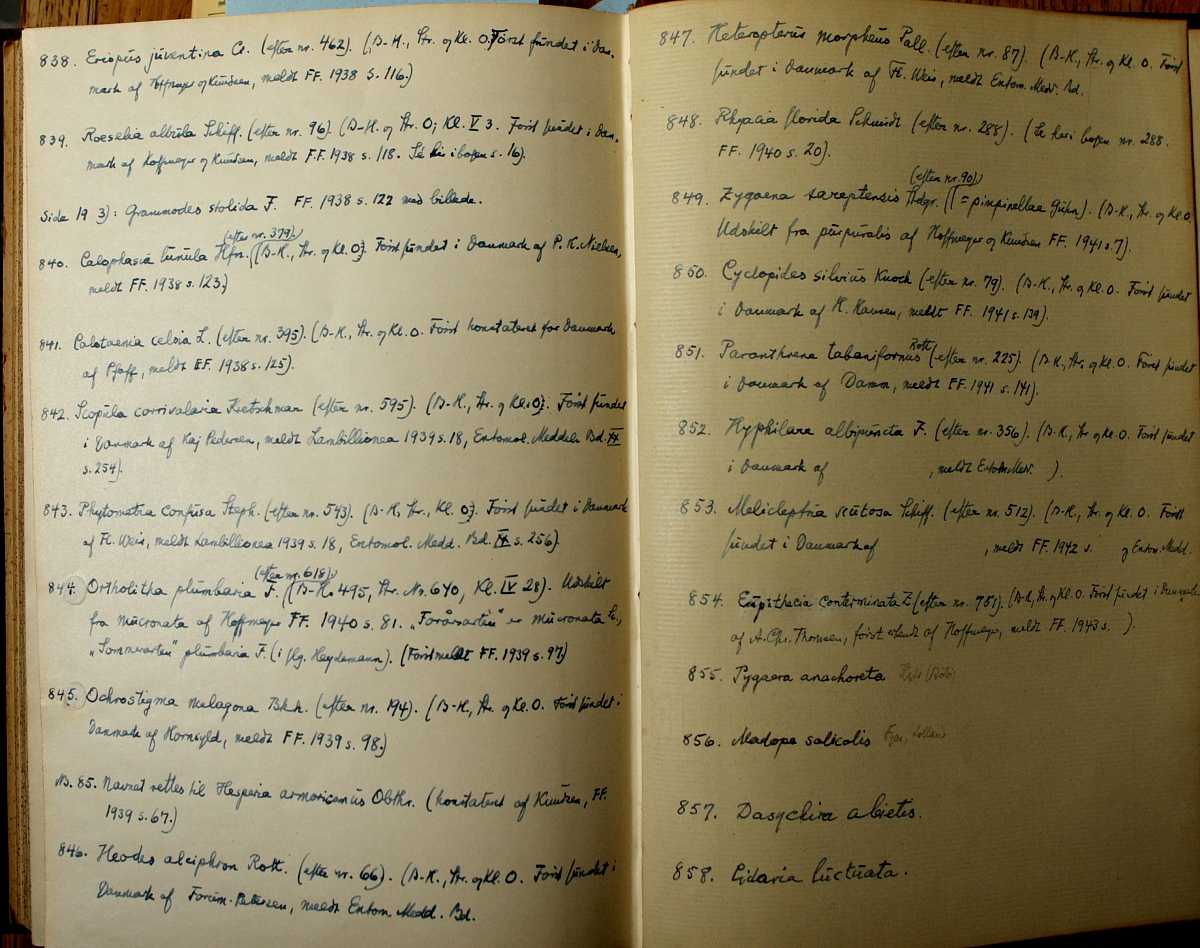 838. Eriopus juventina Cr. (efter nr. 462). (B-H., Str. og Kl. O. Først fundet i Dan-
mark af Hoffmeyer og Knudsen, meldt FF. 1938 S. 116.)
839. Roeselia albula Schiff. (efter nr. 96). (B-H. og Str. O; Kl. V 3. Først fundet i Dan-
mark af Hoffmeyer og Knudsen, meldt F.F. 1938 s. 118. Se her i bogen s. 16).
Side 19 3): Grammodes stolida F. FF. 1938 s. 122 med billede.
(efter nr. 379).
840. Calophasia lunula Hfn. (B-H., Str. og Kl. O). Først fundet i Danmark af P. K. Nielsen,
meldt FF. 1938 s. 123.)
841. Calotaenia celsia L. (efter nr. 395). (B-H., Str. og Kl. O. Først konstateret for Danmark
af Pfaff, meldt FF. 1938 s. 125).
842. Scopula corrivalaria Kretschmar (efter nr. 595). (B-H., Str. og Kl. O). Først fundet
i Danmark af Kaj Pedersen, meldt Lambillionea 1939 s. 18, Entomol. Meddels Bd. XX
s. 254).
843. Phytometra confusa Steph. (efter nr. 543). (B-H., Str., Kl. O). Først fundet i Danmark
af Fl. Weis, meldt Lambillionea 1939 s. 18, Entomol. Medd. Bd. XX s. 256).
(efter nr. 618).
844. Ortholitha plumbaria F. (B-H. 495, Str. No. 640, Kl. IV 28). Udskilt
fra mucronata af Hoffmeyer FF. 1940 s. 81. „Forårsarten" er mucronata Sc.,
„Sommerarten" plumbaria F. (i flg. Heydemann). (Først meldt FF. 1939 s. 97)
845. Ochrostigma melagona Bkh. (efter nr. 194). (B-H., Str. og Kl. O. Først fundet i
Danmark af Hornsyld, meldt FF. 1939 s. 98.)
No. 85. Navnet rettes til Hesperia armoricanus Obthr. (konstateret af Knudsen, FF.
1939 s. 67.)
846. Heodes alciphron Rott. (efter nr. 66). (B-H., Str. og Kl. O. Først fundet i
Danmark af Forum-Petersen, meldt Entom. Medd. Bd.
847. Heteropterus morpheus Pall. (efter nr. 87). (B-H., Str. og Kl. O. Først
fundet i Danmark af Fl. Weis, meldt Entom. Medd. Bd.
848. Rhyacia florida Schmidt (efter nr. 288). (Se her i bogen nr. 288.
FF. 1940 s. 20).
(efter nr. 90).
849. Zygaena sareptensis Hdgr. (= pimpinellae Guhn). (B-H., Str. og Kl. O
Udskilt fra purpuralis af Hoffmeyer og Knudsen FF. 1941 s. 7).
850. Cyclopides silvius Knoch (efter nr. 79). (B-H., Str. og Kl. O. Først fundet
i Danmark af H. Hansen, meldt FF. 1941 s. 139).
851. Paranthrene tabaniformis Rott. (efter nr. 225). (B-H., Str. og Kl. O. Først fundet
i Danmark af Damm, meldt FF. 1941 s. 141).
852. Hyphilare albipuncta F. (efter nr. 356). (B-H., Str. og Kl. O. Først fundet
i Danmark af , meldt Entom. Medd. ).
853. Melicleptria scutosa Schiff. (efter nr. 512). (B-H., Str. og Kl. O. Først
fundet i Danmark af , meldt FF. 1942 s. og Entom. Medd.
854. Eupithecia conterminata Z. (efter nr. 781). (B-H., Str. og Kl. O. Først fundet i Danmark
af A. Chr. Thomsen, først erkendt af Hoffmeyer, meldt FF. 1943 s. ).
855. Pygaera anachoreta
856. Madopa salicalis Lolland
857. Dasychira abietis.
858. Lidaria luctuata.